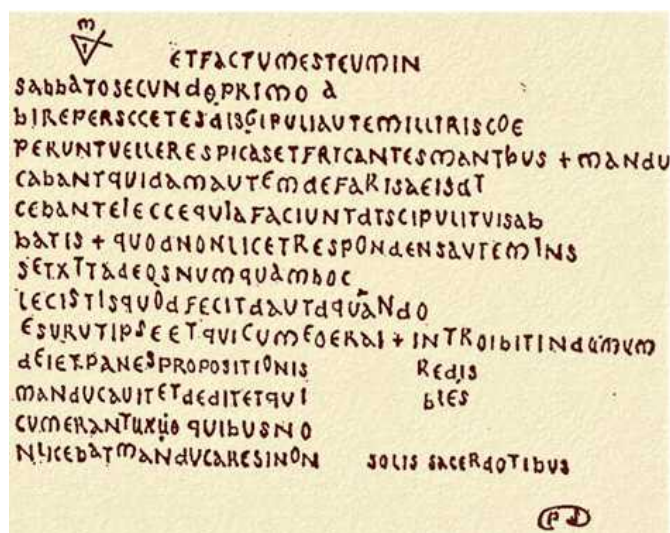 ETFACTUMESTEUMIN
SABBATOSECUNDOPRIMO A
BIREPERSCCETESDISGIPULIAUTEMILLIRISCOE
PERUNTVELLERESPICASETFRICANTESMANTBUS + MANDU
CABANTQUIDAMAUTEMDEFARISAEISDT
CEBANTEIECCEQUIAFACIUNTDTSCIPULITVISAB
BATIS + QUODNONLICETRESPONDENSAUTEMINS
SETXTTADEOSNUMQUAMBOC
LECISTISQUODFECITDAUTDQUANDO
ESURUTIPSEETQUICUMEOERAI + INTROIBITINDOMUM
DEIETPANESPROPOSITIONIS REDIS
MANDUCAUITETDEDITETQUI BLES
CUMERANTUXUO QUIBUSNO
NLICEBATMANDUCARESINON SOLIS SACERDOTIBUS
PD